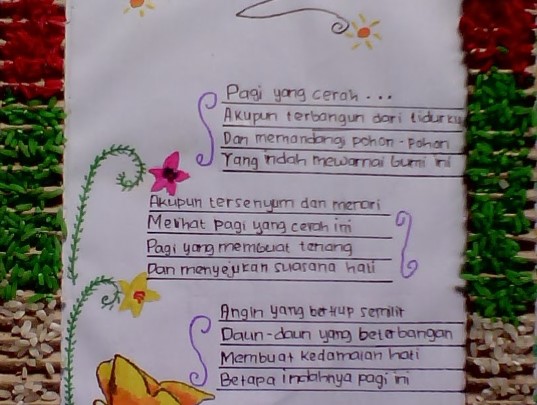 Pagi yang cerah ...
Akupun terbangun dari tidurku
Dan memandangi pohon-pohon
Yang indah mewarnai bumi ini
Akupun tersenyum dan menari
Melihat pagi yang cerah ini
Pagi yang membuat tenang
Dan menyejukan suasana hati
Angin yang bertiup semilir
Daun-daun yang beterbangan
Membuat kedamaian hati
Betapa indahnya pagi ini